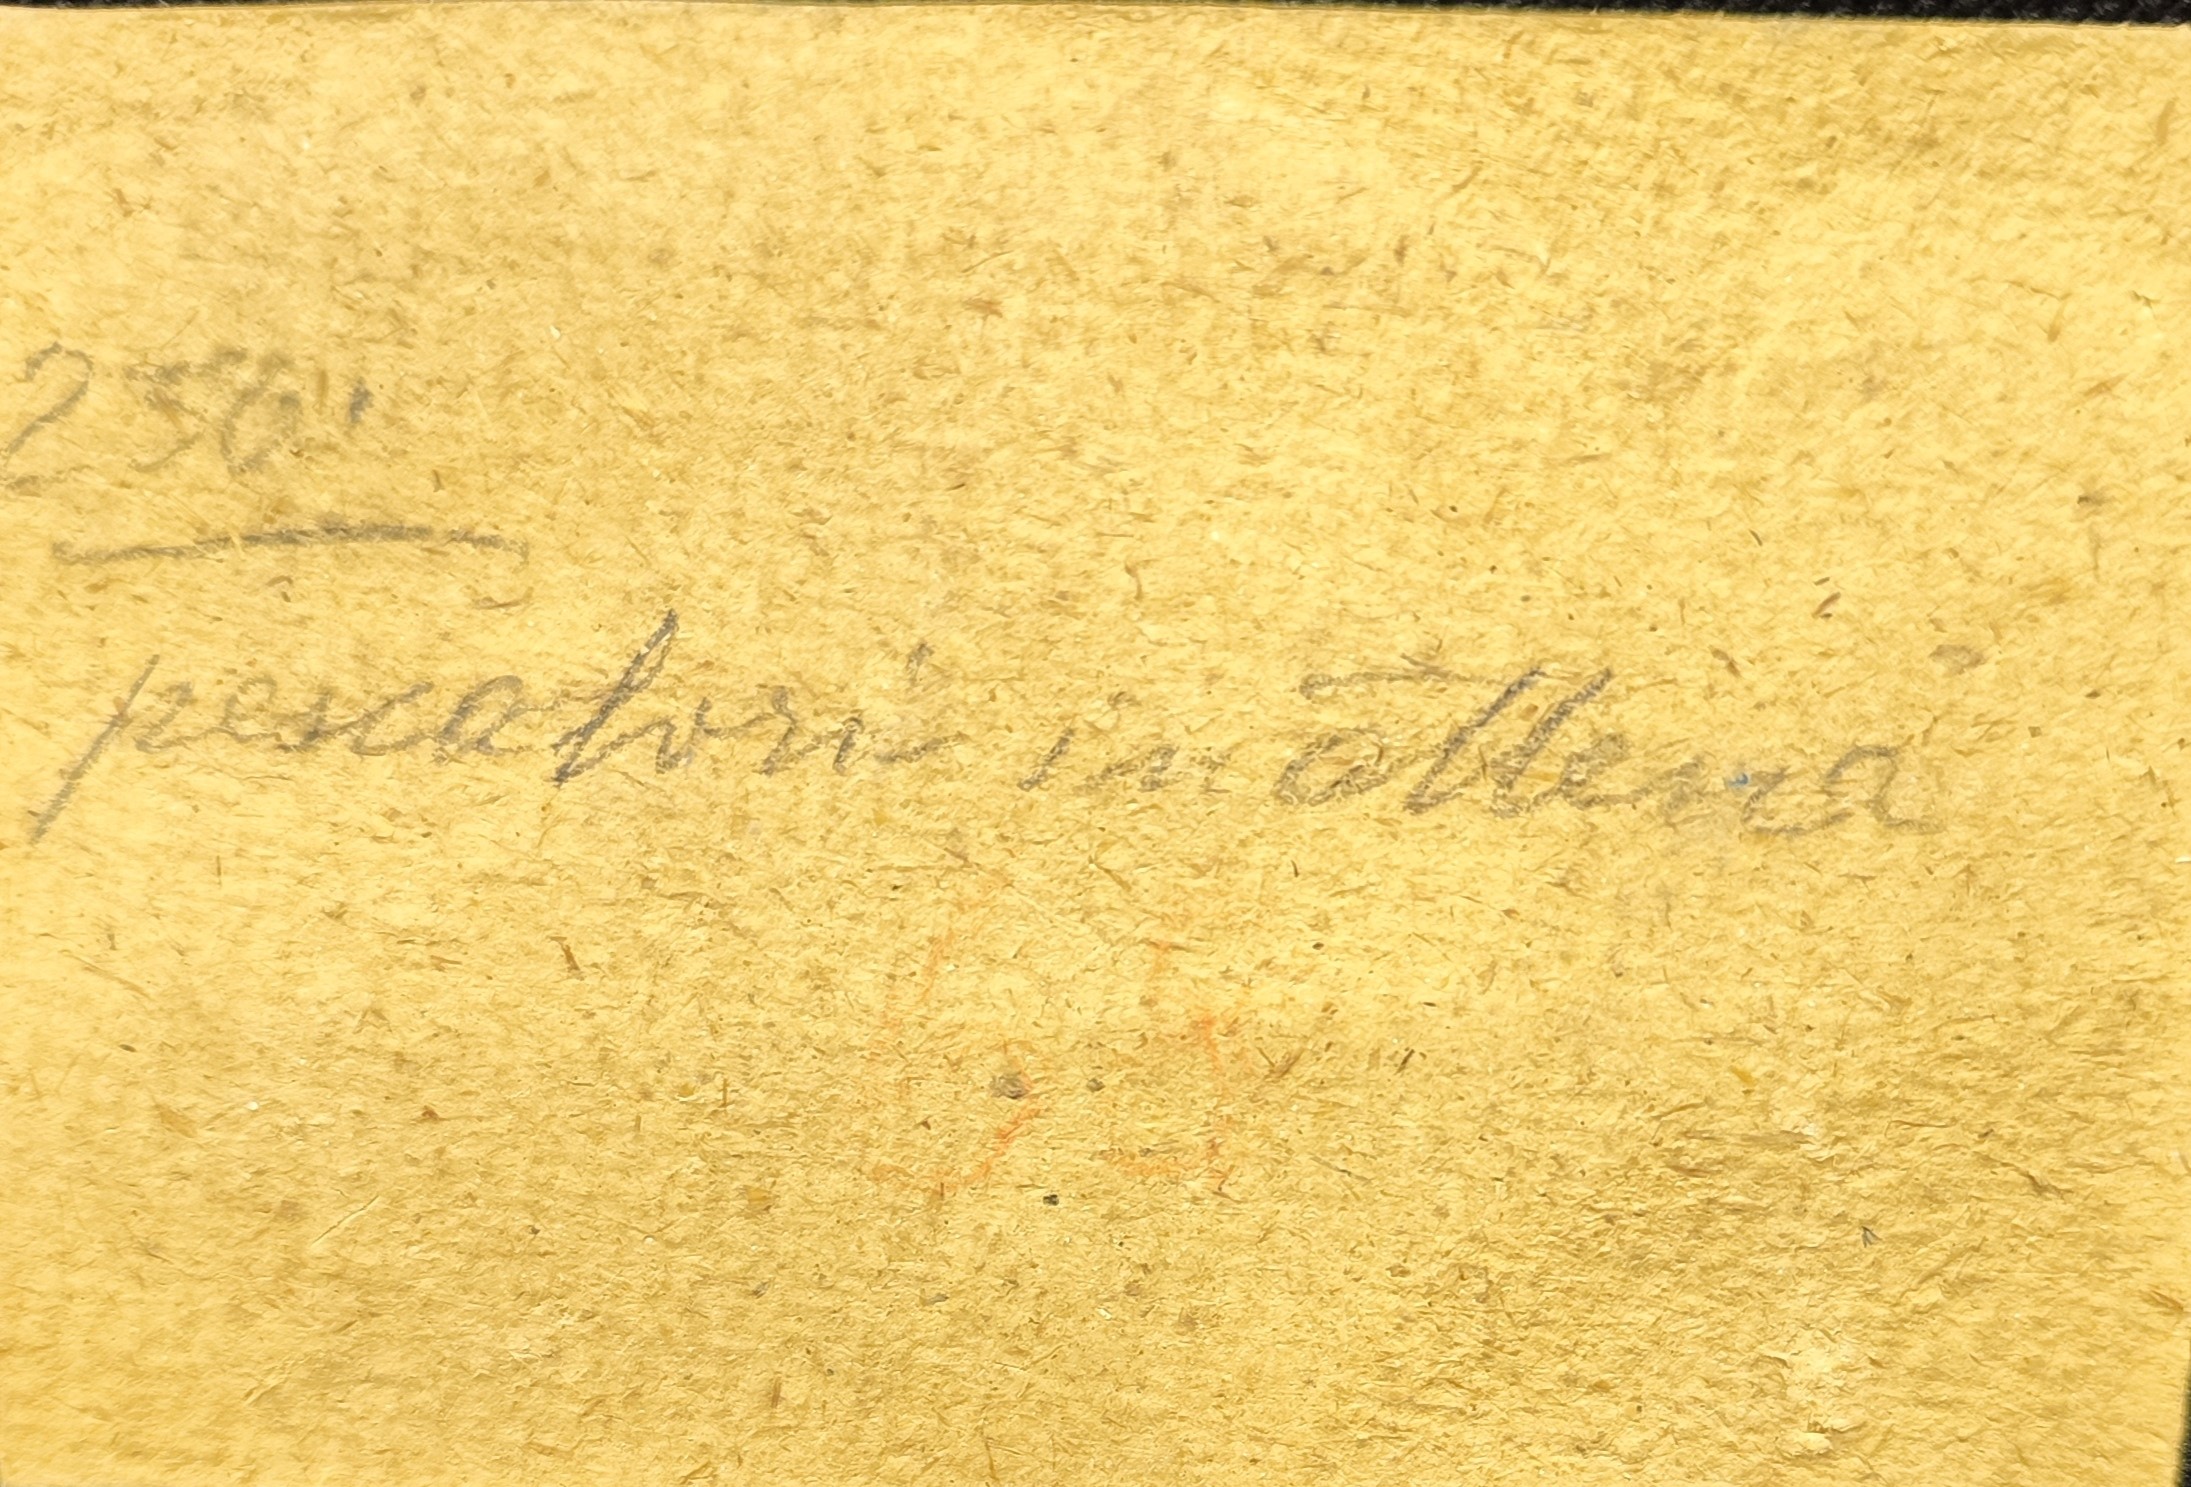 250"
pescatori in attesa